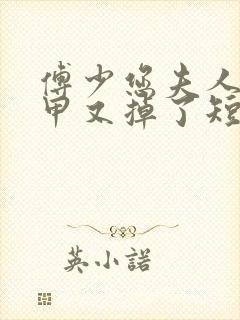 傅少您夫人
甲又掉了短
英小諾